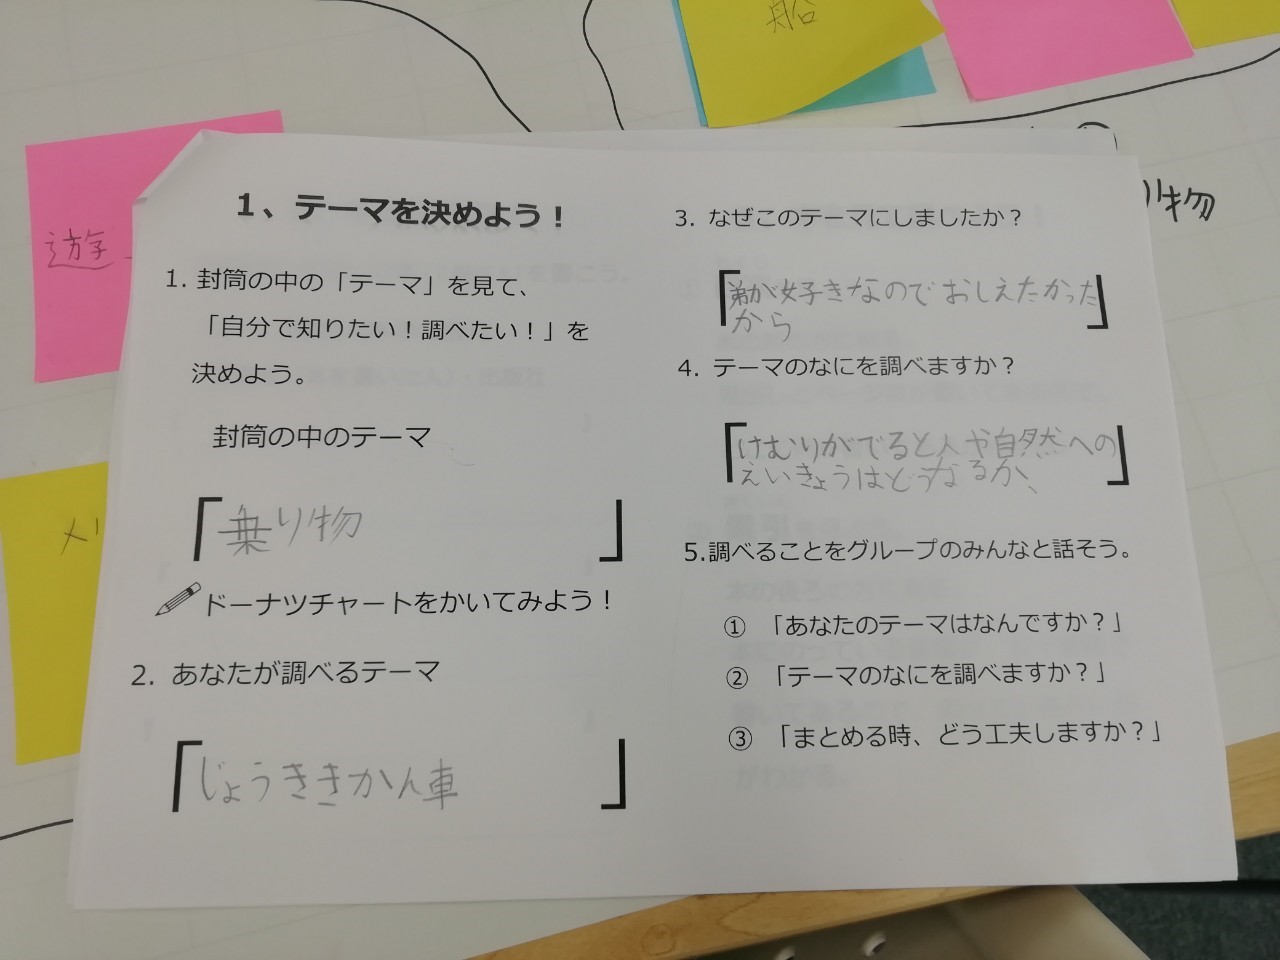 船
遊
り物
メリ
1、テーマを決めよう！
1. 封筒の中の「テーマ」を見て、
「自分で知りたい！調べたい！」を
決めよう。
封筒の中のテーマ
「乗り物」
ドーナツチャートをかいてみよう！
2. あなたが調べるテーマ
「じょうききかん車」
3. なぜこのテーマにしましたか？
「弟が好きなのでおしえたかった
から」
4. テーマのなにを調べますか？
「けむりがでると人や自然への
えいきょうはどうなるか、」
5.調べることをグループのみんなと話そう。
① 「あなたのテーマはなんですか？」
② 「テーマのなにを調べますか？」
③ 「まとめる時、どう工夫しますか？」